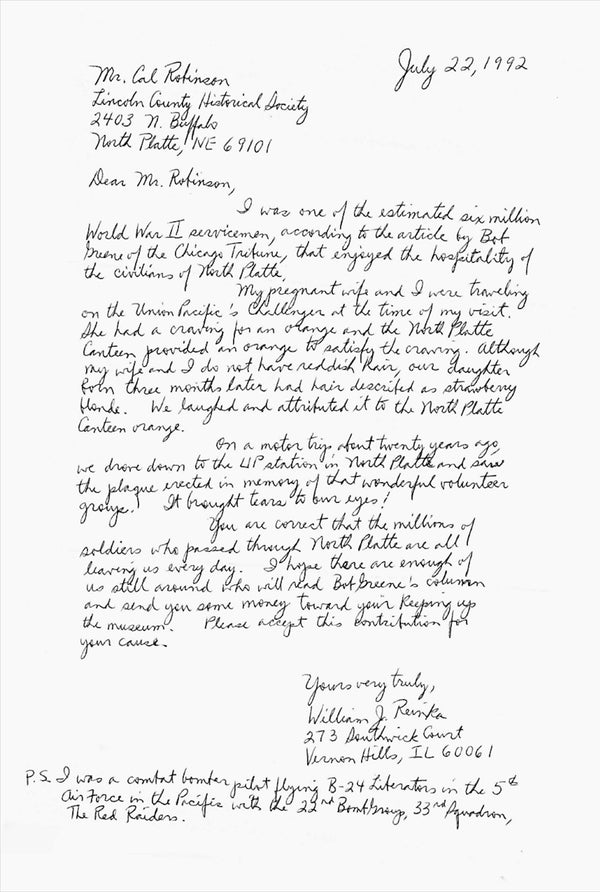 July 22, 1992
Mr. Cal Robinson
Lincoln County Historical Society
2403 N. Buffalo
North Platte, NE 69101
Dear Mr. Robinson,
I was one of the estimated six million
World War II servicemen, according to the article by Bob
Greene of the Chicago Tribune, that enjoyed the hospitality of
the civilians of North Platte.
My pregnant wife and I were traveling
on the Union Pacific's Challenger at the time of my visit.
She had a craving for an orange and the North Platte
Canteen provided an orange to satisfy the craving. Although
my wife and I do not have reddish hair, our daughter
born three months later had hair described as strawberry
blonde. We laughed and attributed it to the North Platte
Canteen orange.
On a motor trip about twenty years ago,
we drove down to the UP station in North Platte and saw
the plaque erected in memory of that wonderful volunteer
group. It brought tears to our eyes!
You are correct that the millions of
soldiers who passed through North Platte are all
leaving us every day. I hope there are enough of
us still around who will read Bob Greene's column
and send you some money toward your keeping up
the museum. Please accept this contribution for
your cause.
Yours very truly,
William J. Reinka
273 Southwick Court
Vernon Hills, IL 60061
P.S. I was a combat bomber pilot flying B-24 Liberators in the 5th
Air Force in the Pacific with the 22nd Bomb Group, 33rd Squadron,
The Red Raiders.